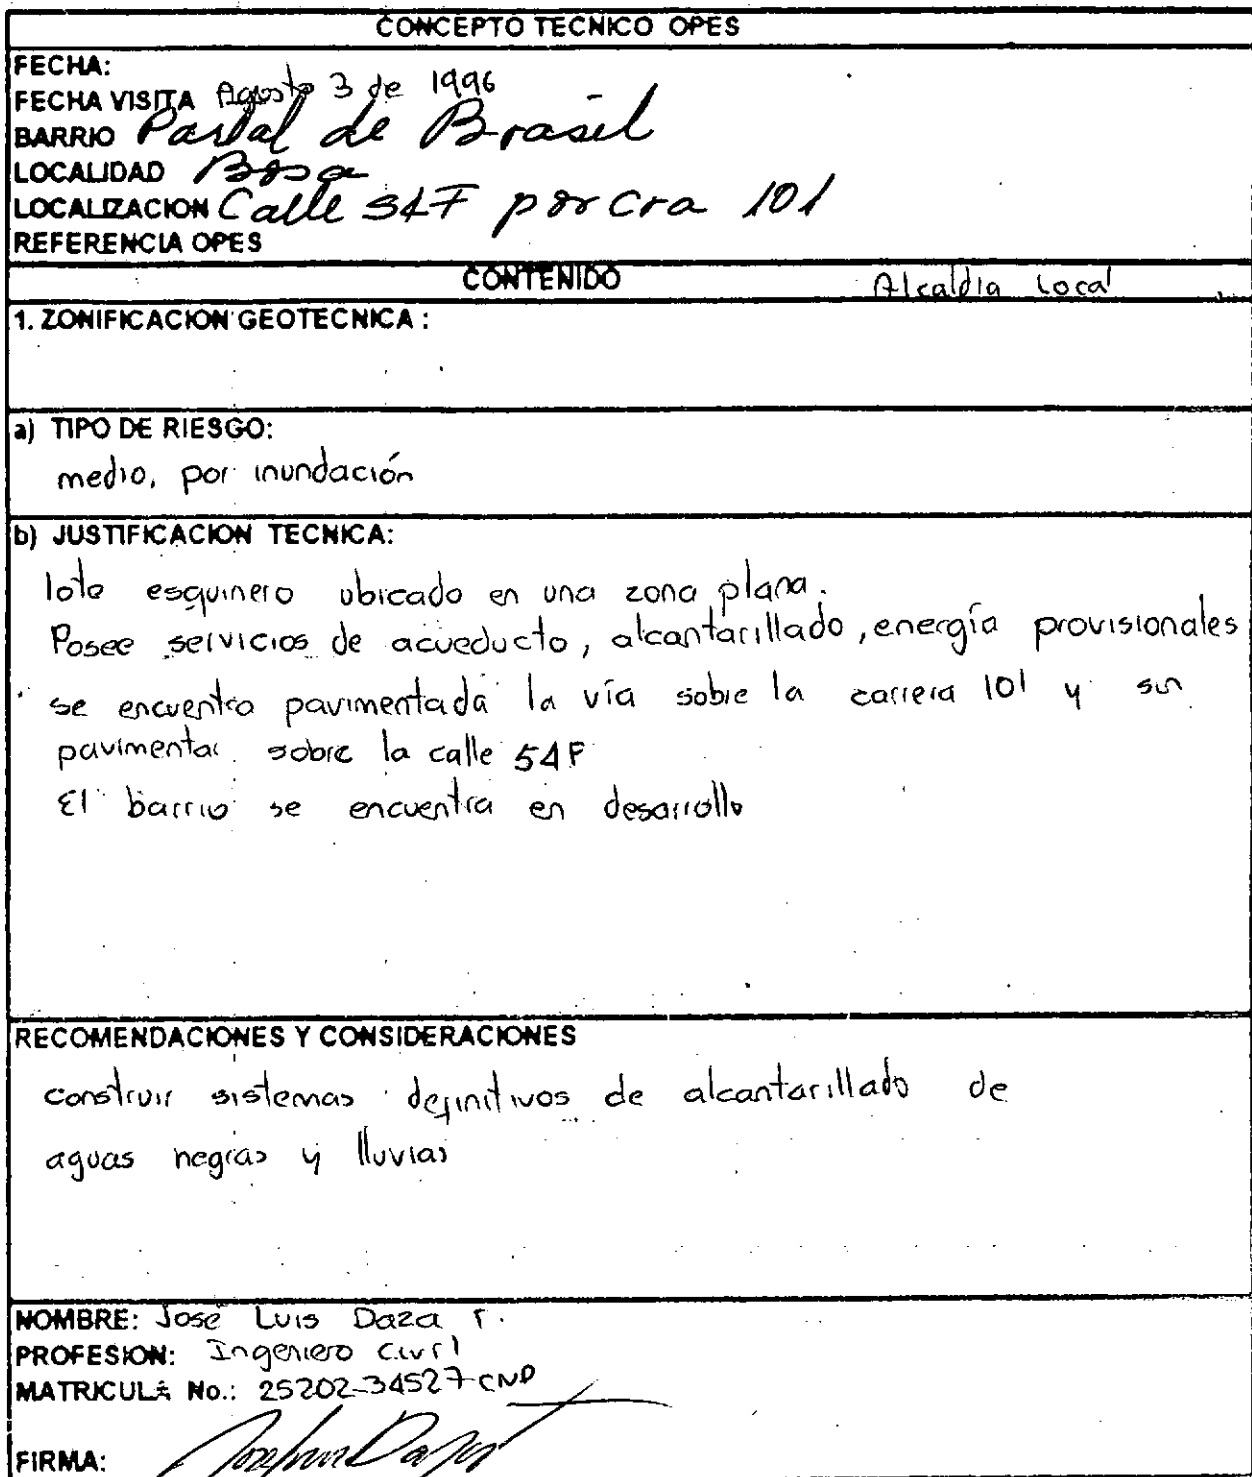 CONCEPTO TECNICO OPES
FECHA:
FECHA VISITA Agosto 3 de 1996
BARRIO Portal de Brasil
LOCALIDAD Bosa
LOCALIZACION Calle 54F por cra 101
REFERENCIA OPES
CONTENIDO Alcaldia Local
1. ZONIFICACION GEOTECNICA :
a) TIPO DE RIESGO:
medio, por inundación
b) JUSTIFICACION TECNICA:
lote esquinero ubicado en una zona plana.
Posee servicios de acueducto, alcantarillado, energía provisionales
se encuentra pavimentada la vía sobre la carrera 101 y sin
pavimentar sobre la calle 54F
El barrio se encuentra en desarrollo
RECOMENDACIONES Y CONSIDERACIONES
construir sistemas definitivos de alcantarillado de
aguas negras y lluvias
NOMBRE: José Luis Daza r.
PROFESION: Ingeniero civil
MATRICULA No.: 25202-34527-CND
FIRMA: